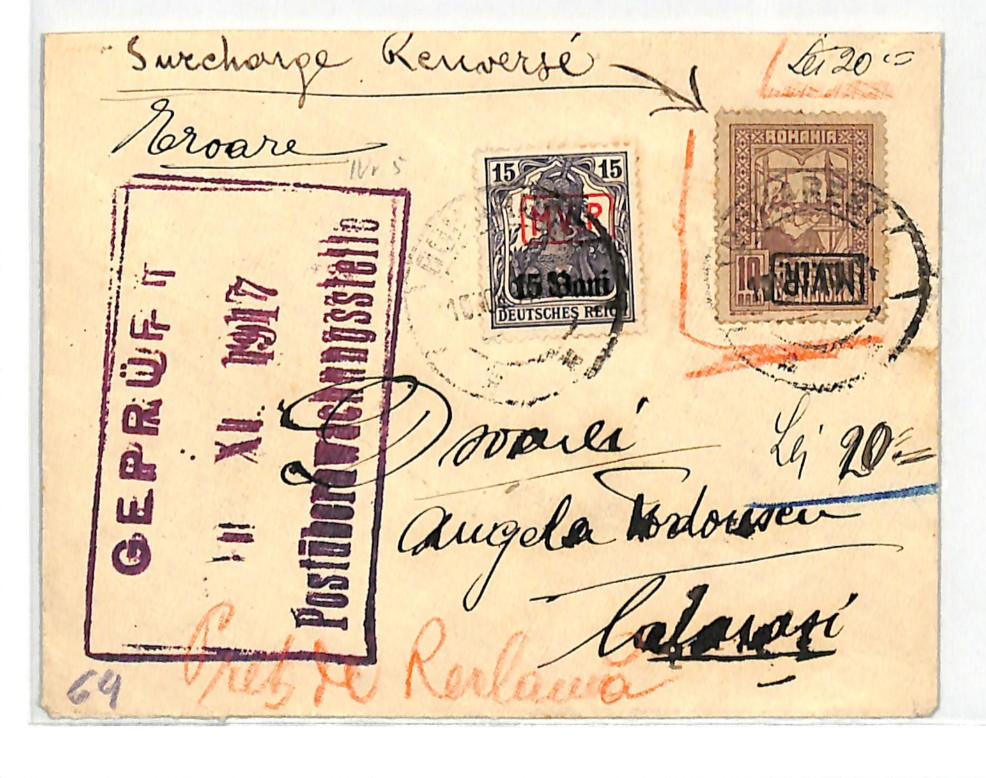 Surcharge Renversé
Lei 20=
Eroare
Nr 5
15 15
M.V.i.R
15 Bani
DEUTSCHES REICH
ROMANIA
10
M.V.i.R.
GEPRÜFT
11 XI. 1917
Postüberwachungsstelle
Lei 20=
Angela Todorescu
Calarasi
Preț de Reclamă
64